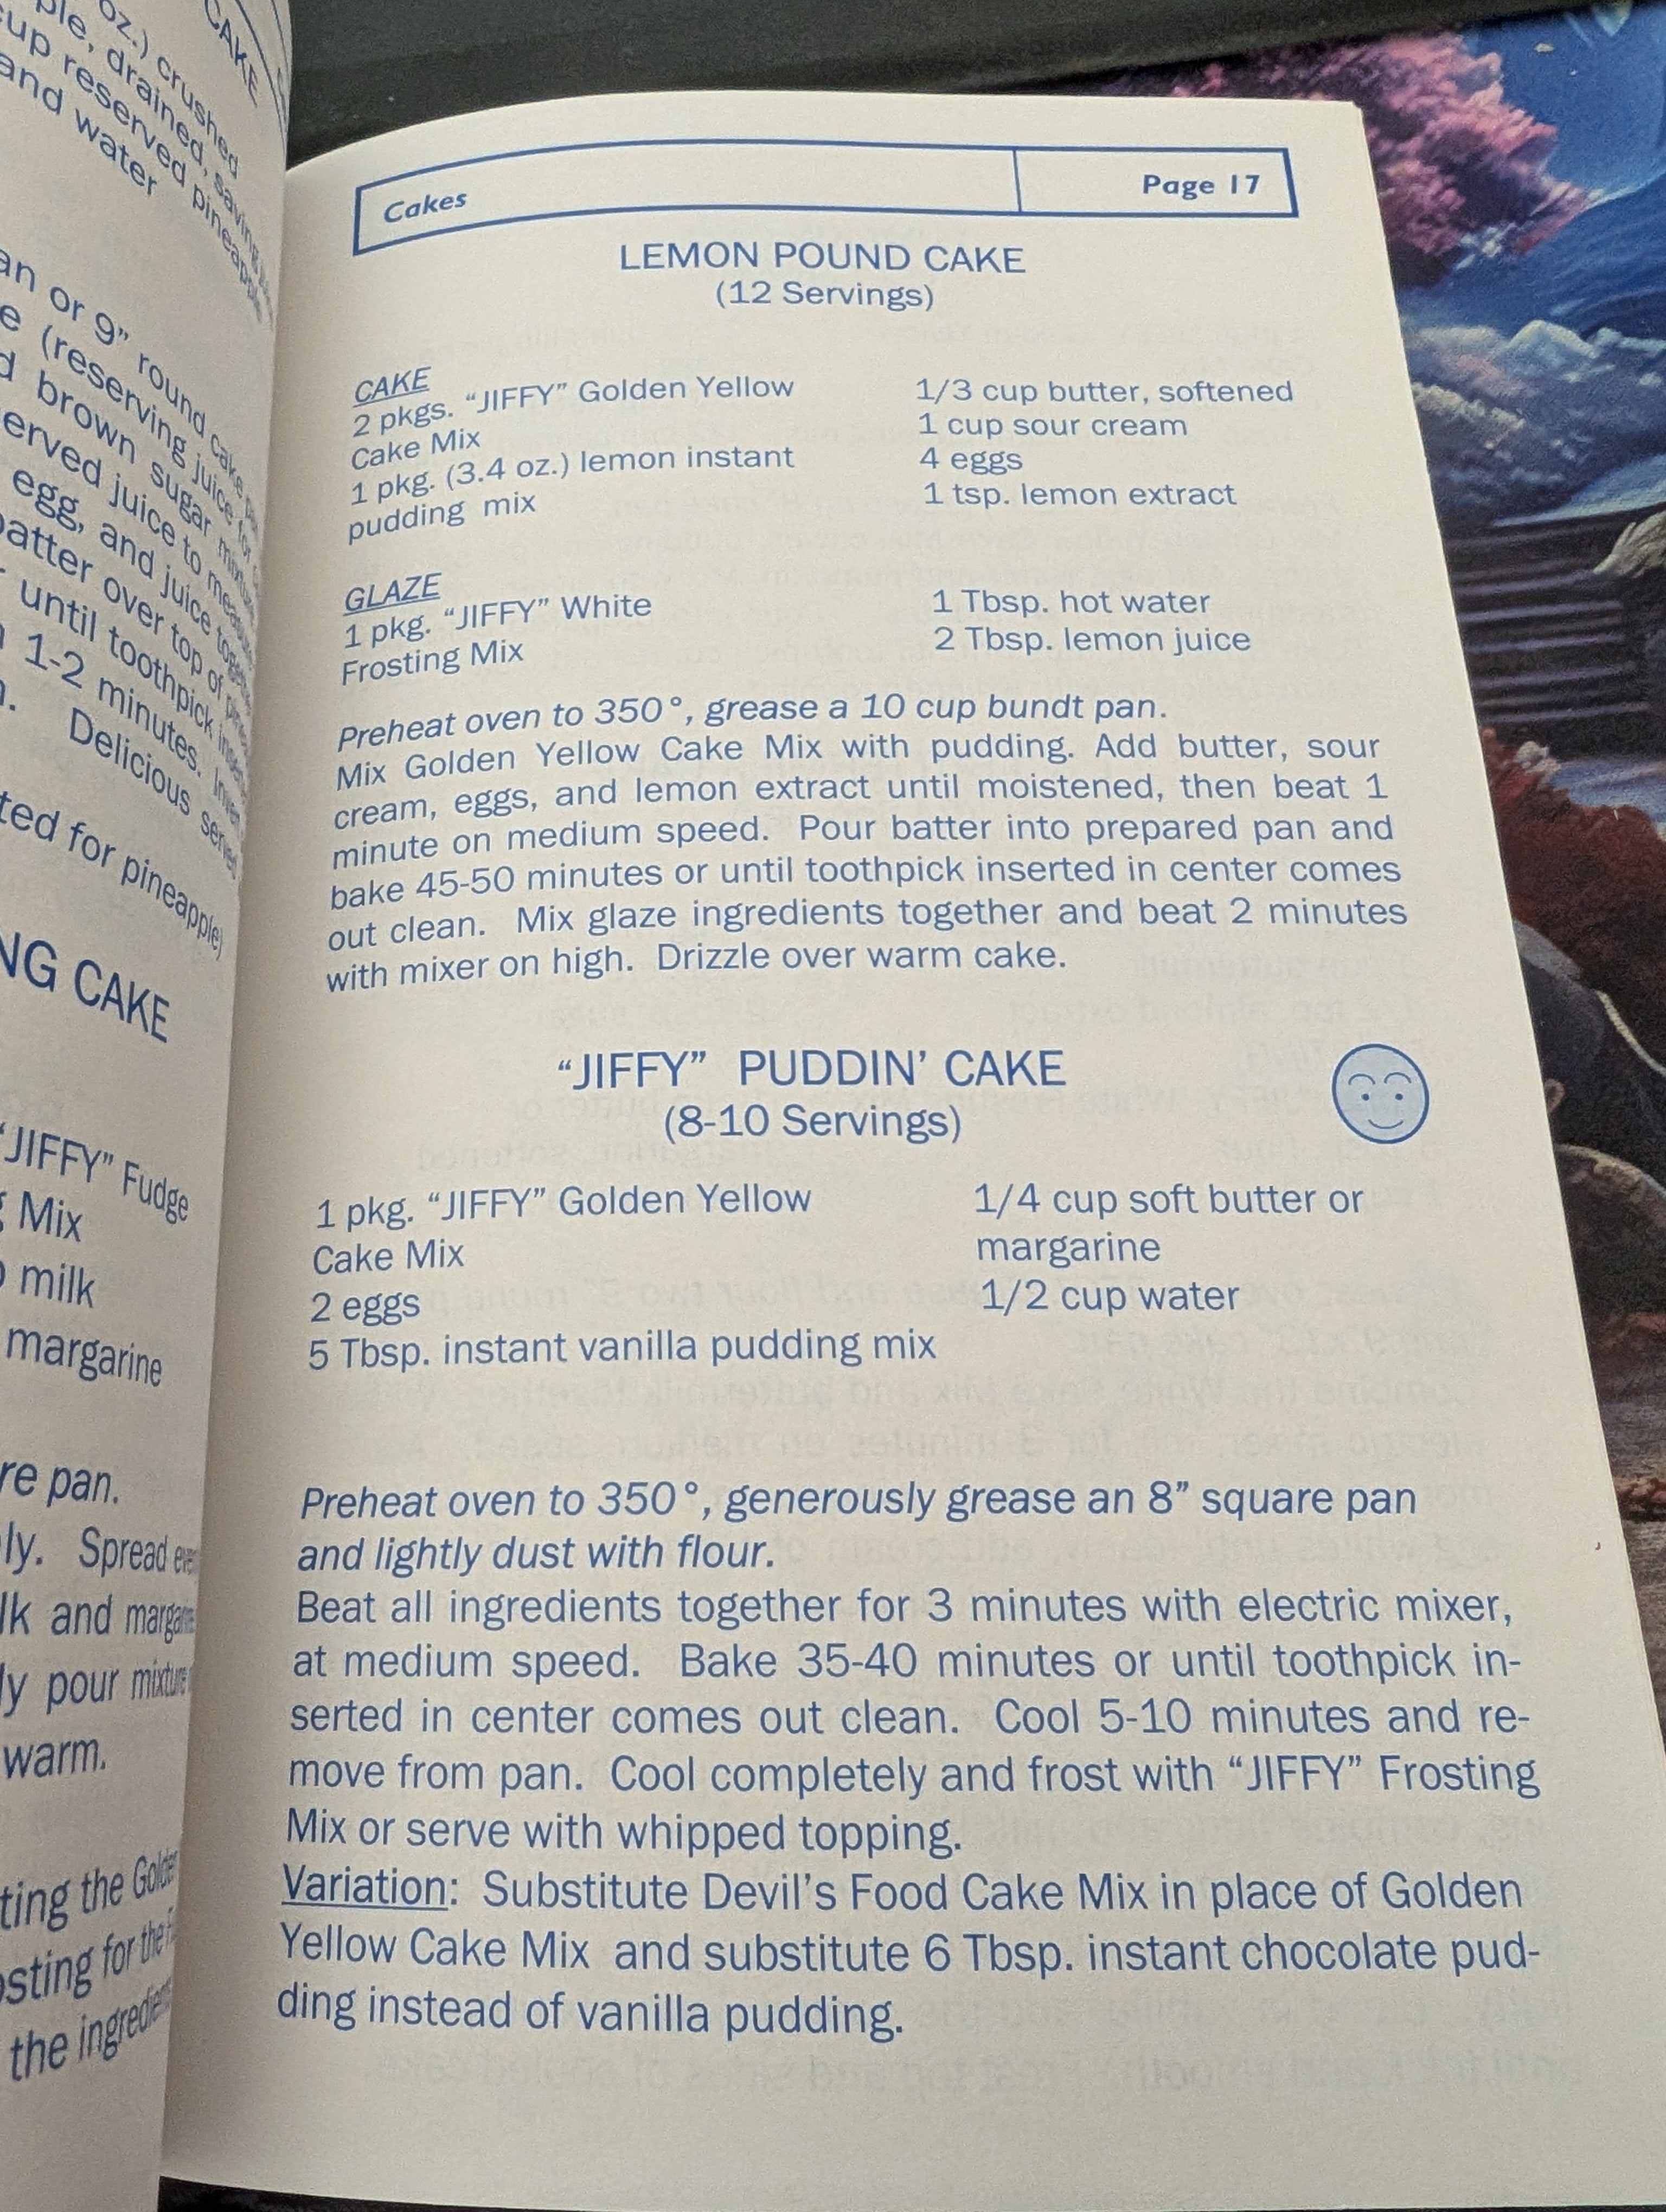 CAKE
oz.) crushed
ple, drained, saving
cup reserved pineapple
and water
an or 9” round cake
e (reserving juice for
d brown sugar mixture
erved juice to measure
egg, and juice together
batter over top of
until toothpick
1-2 minutes.
Delicious served
ted for pineapple)
NG CAKE
“JIFFY” Fudge
Mix
milk
margarine
re pan.
ly. Spread
lk and
ly pour mixture
warm.
ting the
osting for the
the
Cakes
Page 17
LEMON POUND CAKE
(12 Servings)
CAKE
2 pkgs. “JIFFY” Golden Yellow
Cake Mix
1 pkg. (3.4 oz.) lemon instant
pudding mix
1/3 cup butter, softened
1 cup sour cream
4 eggs
1 tsp. lemon extract
GLAZE
1 pkg. “JIFFY” White
Frosting Mix
1 Tbsp. hot water
2 Tbsp. lemon juice
Preheat oven to 350°, grease a 10 cup bundt pan.
Mix Golden Yellow Cake Mix with pudding. Add butter, sour
cream, eggs, and lemon extract until moistened, then beat 1
minute on medium speed. Pour batter into prepared pan and
bake 45-50 minutes or until toothpick inserted in center comes
out clean. Mix glaze ingredients together and beat 2 minutes
with mixer on high. Drizzle over warm cake.
“JIFFY” PUDDIN’ CAKE
(8-10 Servings)
1 pkg. “JIFFY” Golden Yellow
Cake Mix
2 eggs
5 Tbsp. instant vanilla pudding mix
1/4 cup soft butter or
margarine
1/2 cup water
Preheat oven to 350°, generously grease an 8” square pan
and lightly dust with flour.
Beat all ingredients together for 3 minutes with electric mixer,
at medium speed. Bake 35-40 minutes or until toothpick in-
serted in center comes out clean. Cool 5-10 minutes and re-
move from pan. Cool completely and frost with “JIFFY” Frosting
Mix or serve with whipped topping.
Variation: Substitute Devil’s Food Cake Mix in place of Golden
Yellow Cake Mix and substitute 6 Tbsp. instant chocolate pud-
ding instead of vanilla pudding.